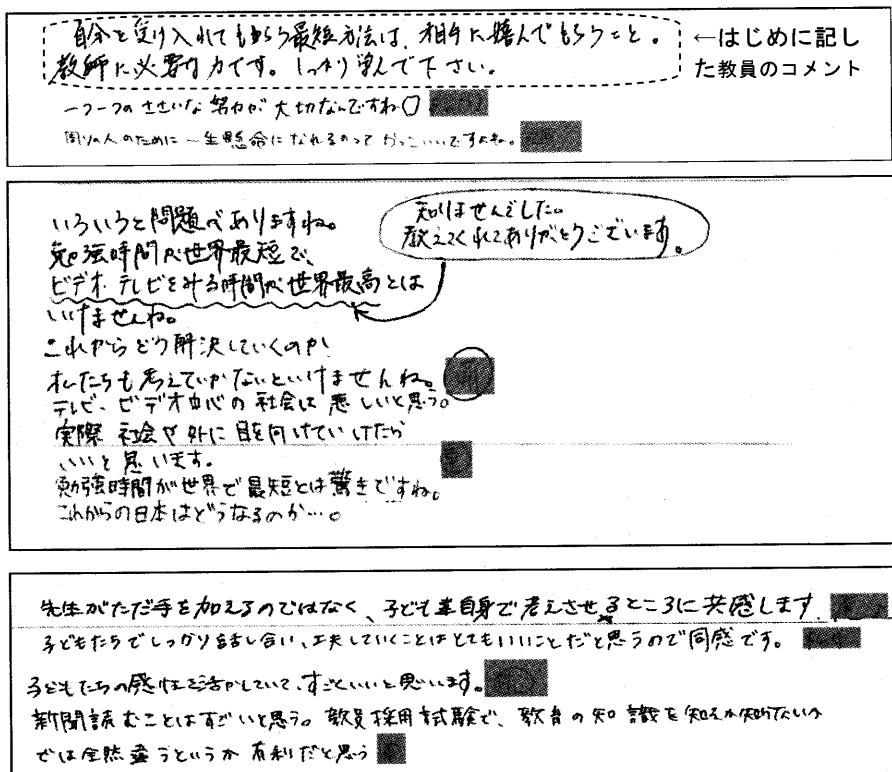 自分を受け入れてもらう最短方法は、相手に喜んでもらうこと。
教師に必要な力です。しっかり学んで下さい。
←はじめに記し
た教員のコメント
一つ一つのささいな努力が大切なんですね
周りの人のために一生懸命になれるのってかっこいいですよね。
いろいろと問題がありますね。
勉強時間が世界最短で、
ビデオ・テレビをみる時間が世界最高とは
いけませんね。
知りませんでした。
教えてくれてありがとうございます。
これからどう解決していくのか
私たちも考えていかないといけませんね。
テレビ、ビデオ中心の社会は悲しいと思う。
実際社会や外に目を向けていけたら
いいと思います。
勉強時間が世界で最短とは驚きですね。
これからの日本はどうなるのか…。
先生がただ手を加えるのではなく、子ども達自身で考えさせるところに共感します
子どもたちでしっかり話し合い、工夫していくことはとてもいいことだと思うので同感です。
子どもたちの感性を活かしていて、すごくいいと思います。
新聞読むことはすごいと思う。教員採用試験で、教育の知識を知るか知らないか
では全然違うというか有利だと思う